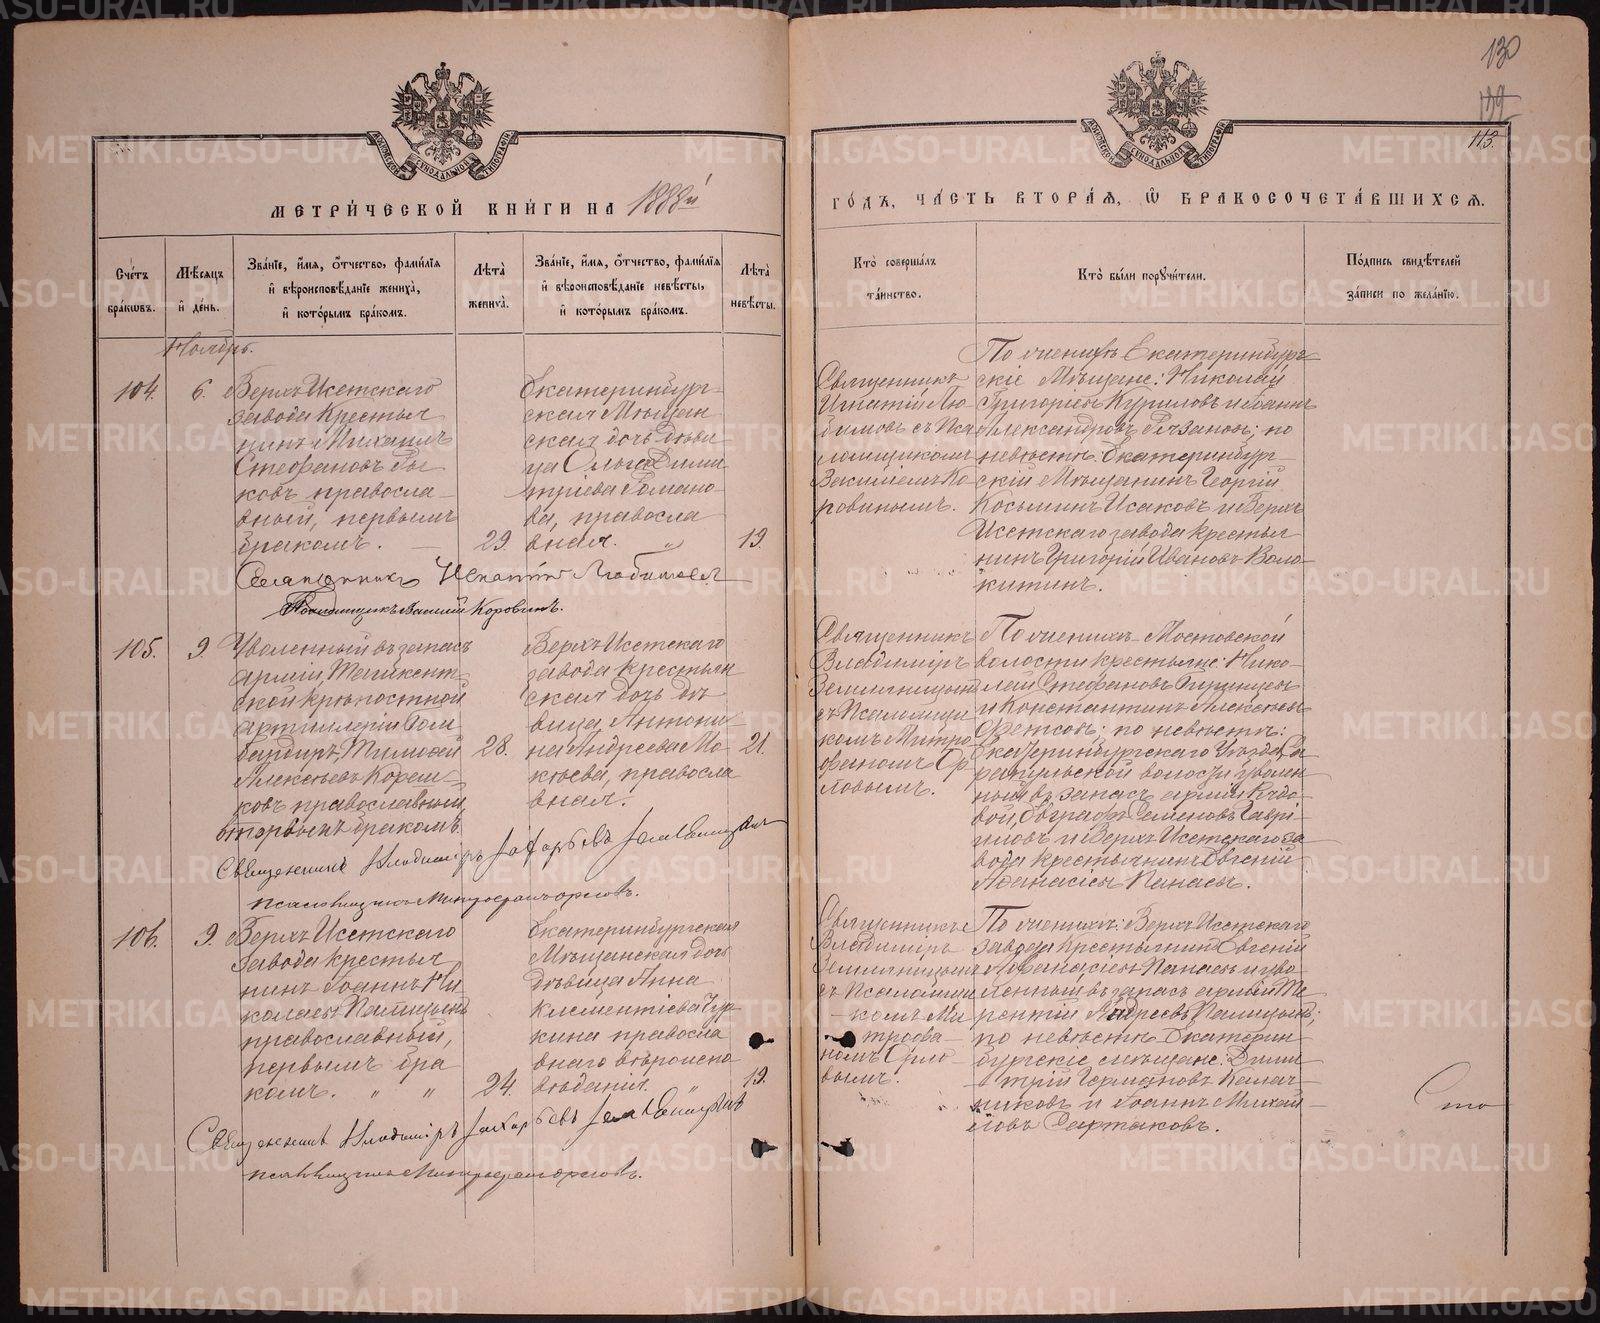 130
132
113.
МОСКОВСКОЙ СѴНОДАЛЬНОЙ ТИПОГРАФІИ
МОСКОВСКОЙ СѴНОДАЛЬНОЙ ТИПОГРАФІИ
МЕТРИ́ЧЕСКОЙ КНИ́ГИ НА 1888й
ГО́ДЪ, ЧА́СТЬ ВТОРА́Я, Ѡ҆ БРАКОСОЧЕТА́ВШИХСѦ.
Счетъ бракωвъ.
Мѣсяцъ и день.
Званіе, имя, отчество, фамилія и вѣроисповѣданіе жениха, и которымъ бракомъ.
Лѣта жениха.
Званіе, имя, отчество, фамилія и вѣроисповѣданіе невѣсты, и которымъ бракомъ.
Лѣта невѣсты.
Кто совершалъ таинство.
Кто были поручители.
Подпись свидѣтелей записи по желанію.
Ноябрь.
104.
6.
Верхъ Исетскаго
завода крестья
нинъ Михаилъ
Стефановъ Бы
ковъ правосла-
вный, первымъ
бракомъ.
29.
Екатеринбург-
ская Мѣщан
ская дочь дѣви
ца Ольга Дими
тріева Романо-
ва, правосла
вная.
19.
Священникъ
Игнатій Лю
бимовъ съ Пса
ломщикомъ
Василіемъ Ко
ровинымъ.
По женихѣ Екатеринбург
скіе Мѣщане: Николай
Григорьевъ Куриловъ и Іоаннъ
Александровъ Рязановъ; по
невѣстѣ: Екатеринбург-
скій Мѣщанинъ Георгій
Косьминъ Исаковъ и Верхъ
Исетскаго завода крестья
нинъ Григорій Ивановъ Воло
китинъ.
Священникъ Игнатій Любимовъ
Псаломщикъ Василій Коровинъ.
105.
9.
Уволенный въ запасъ
арміи, Ташкент
ской крѣпостной
артиллеріи бом
бардиръ, Тимофей
Алексѣевъ Кореш-
ковъ православный,
вторымъ бракомъ.
28.
Верхъ Исетскаго
завода крестьян
ская дочь дѣ
вица Антони
на Андреева Мо
кѣева, правосла
вная.
21.
Священникъ
Владиміръ
Земляницынъ
съ Псаломщи
комъ Митро
фаномъ Ор
ловымъ.
По женихѣ Мостовской
волости крестьяне: Нико-
лай Стефановъ
и Константинъ Алексѣевъ
по невѣстѣ:
Екатеринбургскаго Уѣзда,
волости уволен
ный въ запасъ арміи
Семеновъ Гаври
ловъ и Верхъ Исетскаго за
вода крестьянинъ Евгеній
Афанасіевъ Панаевъ.
Священникъ Владиміръ Захаровъ Земляницынъ
псаломщикъ Митрофанъ Орловъ.
106.
9.
Верхъ Исетскаго
завода крестья
нинъ Іоаннъ Ни
колаевъ Палицынъ
православный,
первымъ бра
комъ. " "
24.
Екатеринбургская
Мѣщанская дочь
дѣвица Анна
Клементіева Чур
кина правосла
внаго вѣроиспо
вѣданія. "
19.
Священникъ
Владиміръ
Земляницынъ
съ Псаломщи
комъ Ми
трофа
номъ Орло
вымъ.
По женихѣ: Верхъ Исетскаго
завода крестьянинъ Евгеній
Афанасіевъ Панаевъ и уво
ленный въ запасъ арміи Те
рентій Андреевъ Палицынъ;
по невѣстѣ Екатерин
бургскіе мѣщане: Дими
трій Германовъ Калач-
никовъ и Іоаннъ Михай
ловъ Сартаковъ.
Священникъ Владиміръ Захаровъ Земляницынъ
псаломщикъ Митрофанъ Орловъ.
Сто
METRIKI.GASO-URAL.RU